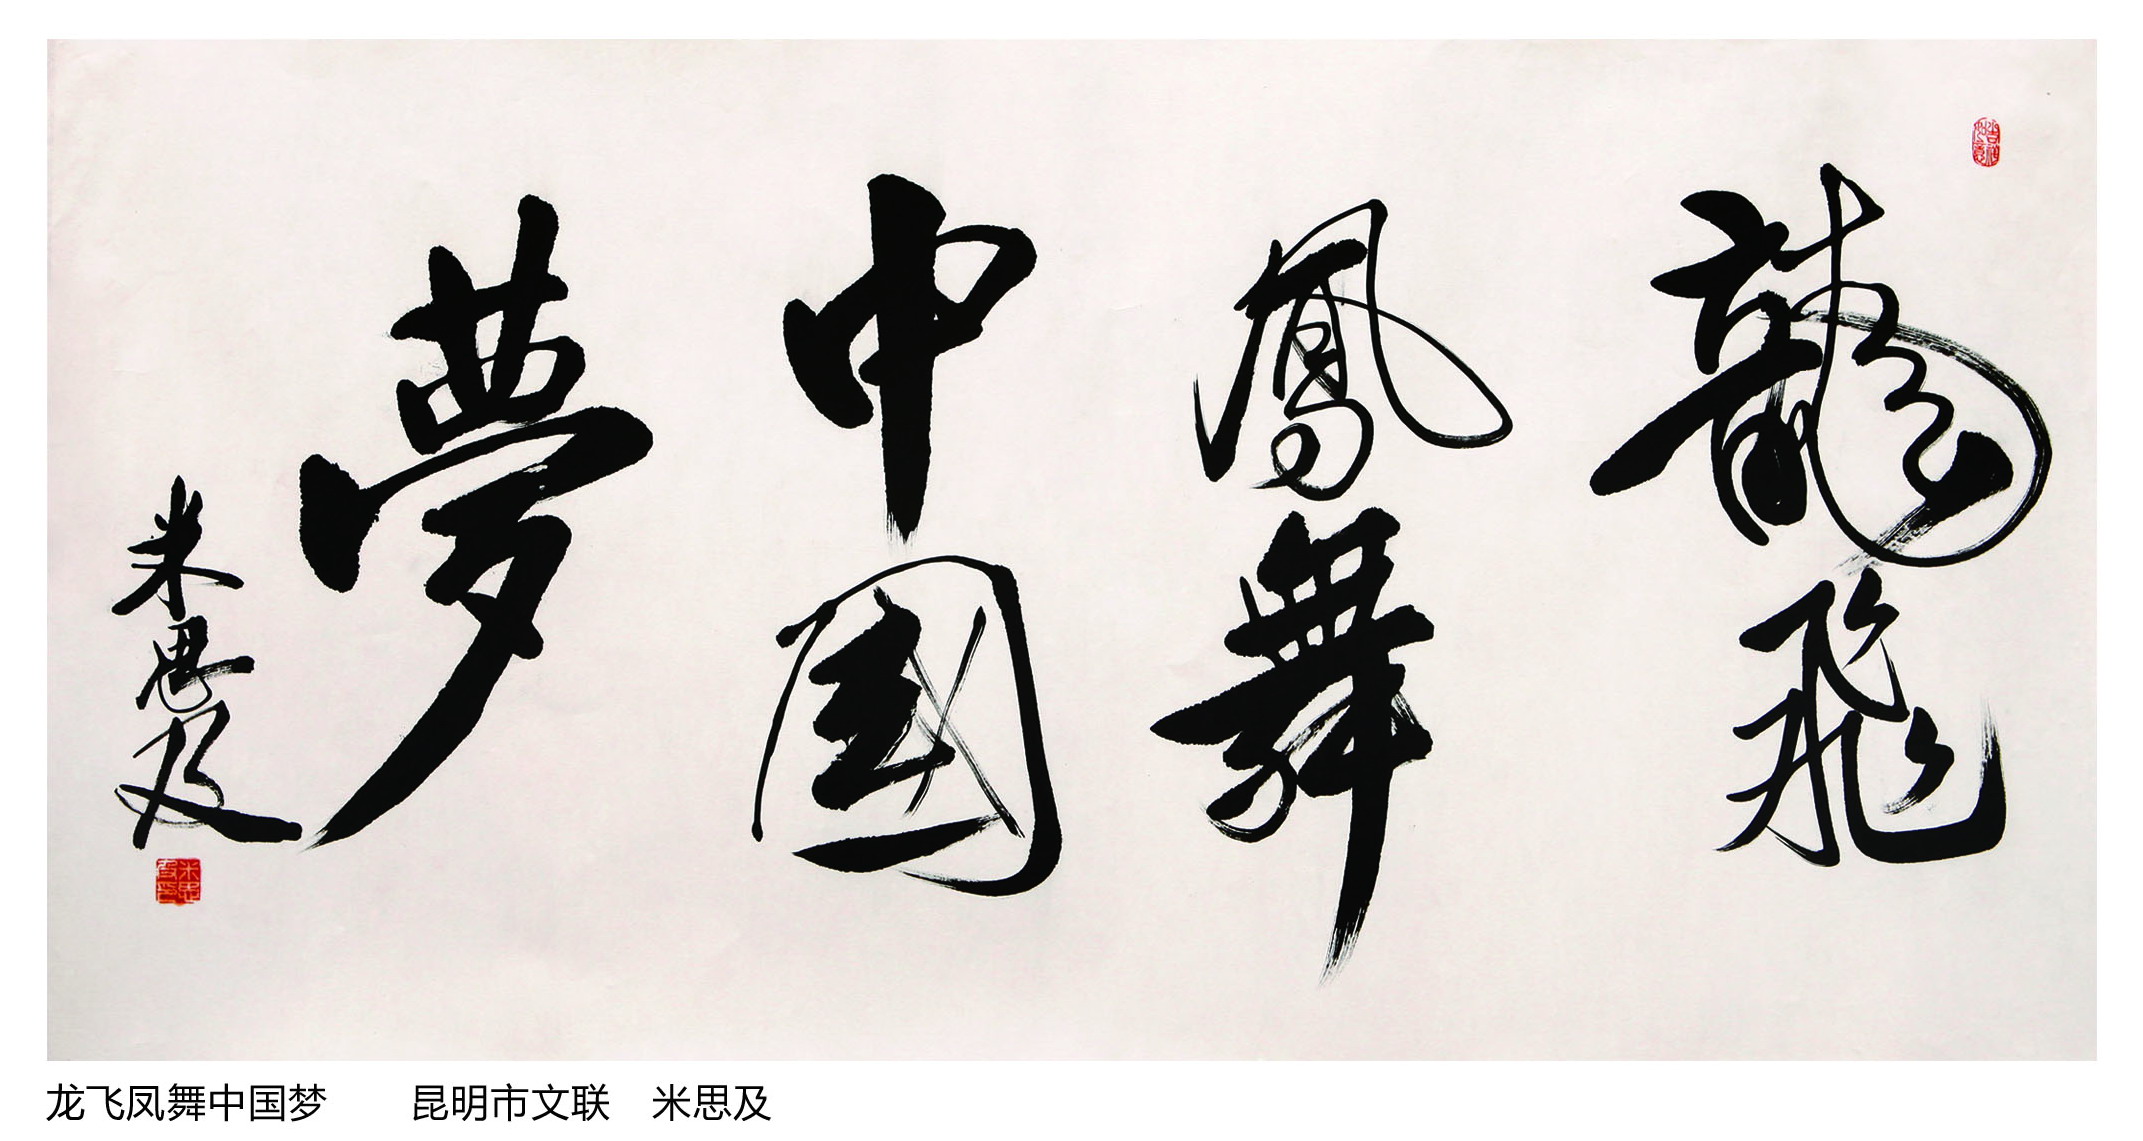 龍飛
鳳舞
中國
夢
米思及
龙飞凤舞中国梦 昆明市文联 米思及